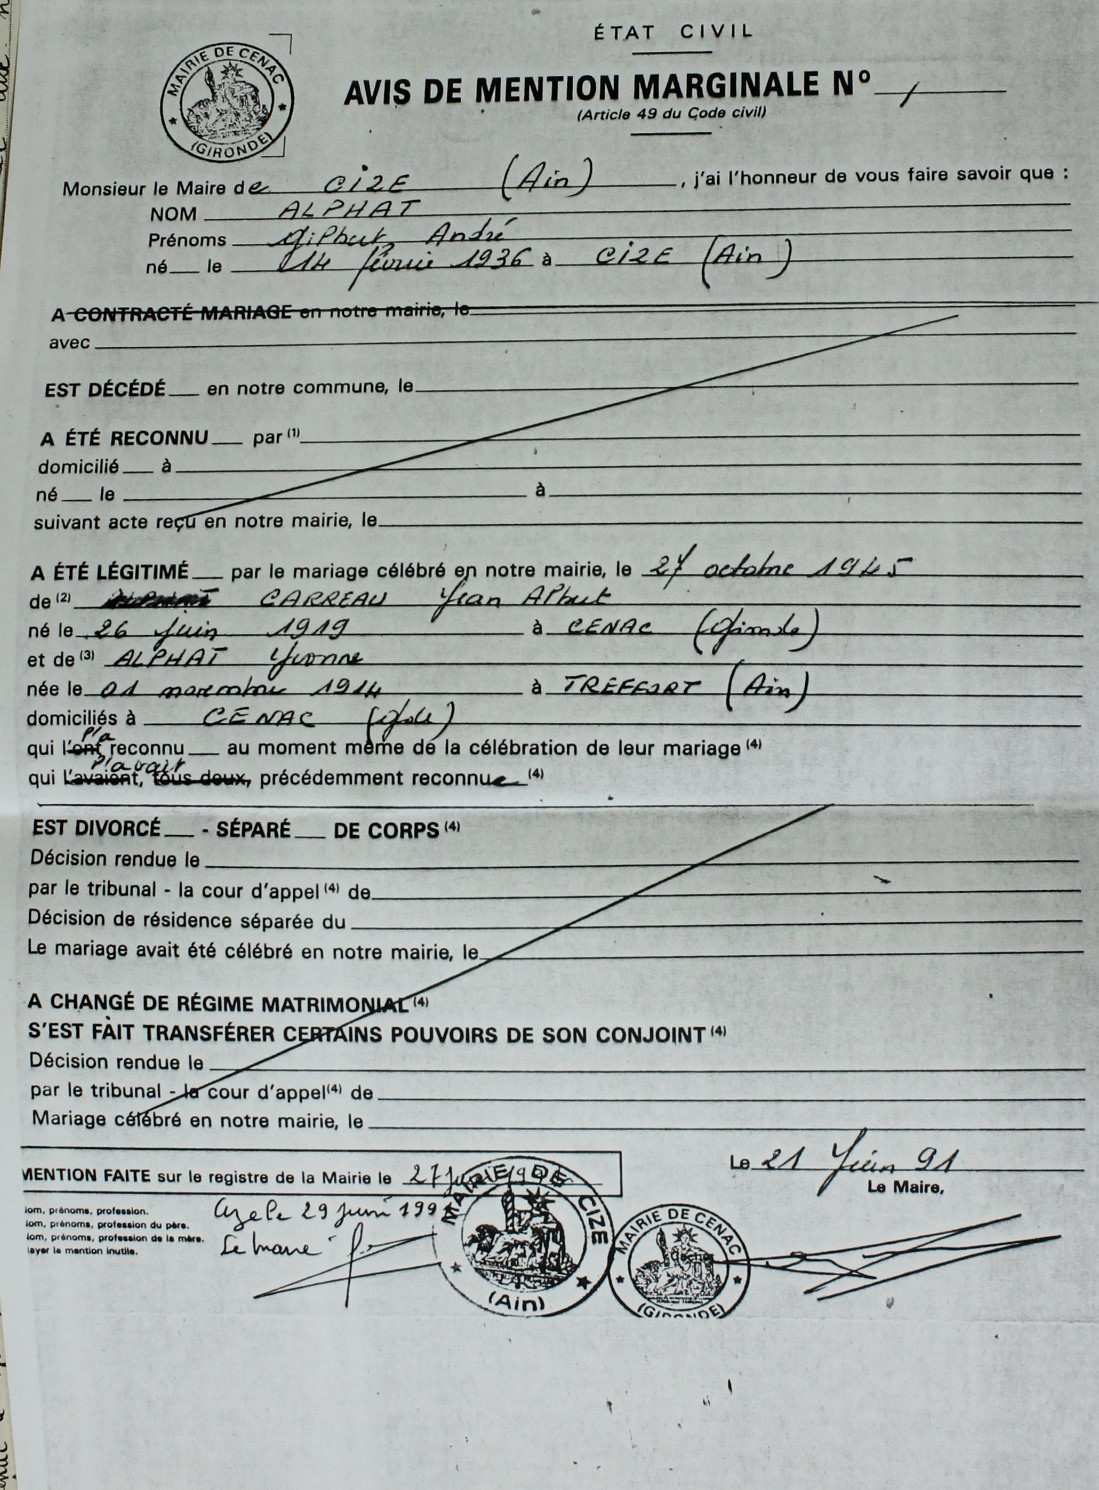 ÉTAT CIVIL
MAIRIE DE CENAC
(GIRONDE)
AVIS DE MENTION MARGINALE N° 1
(Article 49 du Code civil)
Monsieur le Maire de CIZE (Ain), j'ai l'honneur de vous faire savoir que :
NOM ALPHAT
Prénoms Gilbert André
né le 14 février 1936 à CIZE (Ain)
A CONTRACTÉ MARIAGE en notre mairie, le
avec
EST DÉCÉDÉ en notre commune, le
A ÉTÉ RECONNU par (1)
domicilié à
né le à
suivant acte reçu en notre mairie, le
A ÉTÉ LÉGITIMÉ par le mariage célébré en notre mairie, le 27 octobre 1945
de (2) CARREAU Jean Albert
né le 26 juin 1919 à CENAC (Gironde)
et de (3) ALPHAT Yvonne
née le 01 novembre 1914 à TREFFORT (Ain)
domiciliés à CENAC (Gde)
l'a
qui l'ont reconnu au moment même de la célébration de leur mariage (4)
l'avait
qui l'avaient, tous deux, précédemment reconnue (4)
EST DIVORCÉ - SÉPARÉ DE CORPS (4)
Décision rendue le
par le tribunal - la cour d'appel (4) de
Décision de résidence séparée du
Le mariage avait été célébré en notre mairie, le
A CHANGÉ DE RÉGIME MATRIMONIAL (4)
S'EST FAIT TRANSFÉRER CERTAINS POUVOIRS DE SON CONJOINT (4)
Décision rendue le
par le tribunal - la cour d'appel (4) de
Mariage célébré en notre mairie, le
MENTION FAITE sur le registre de la Mairie le 27
Le 21 Juin 91
Le Maire,
iom, prénoms, profession.
iom, prénoms, profession du père.
iom, prénoms, profession de la mère.
layer la mention inutile.
Cize le 29 juin 1991
Le Maire
MAIRIE DE CIZE
(Ain)
MAIRIE DE CENAC
(GIRONDE)